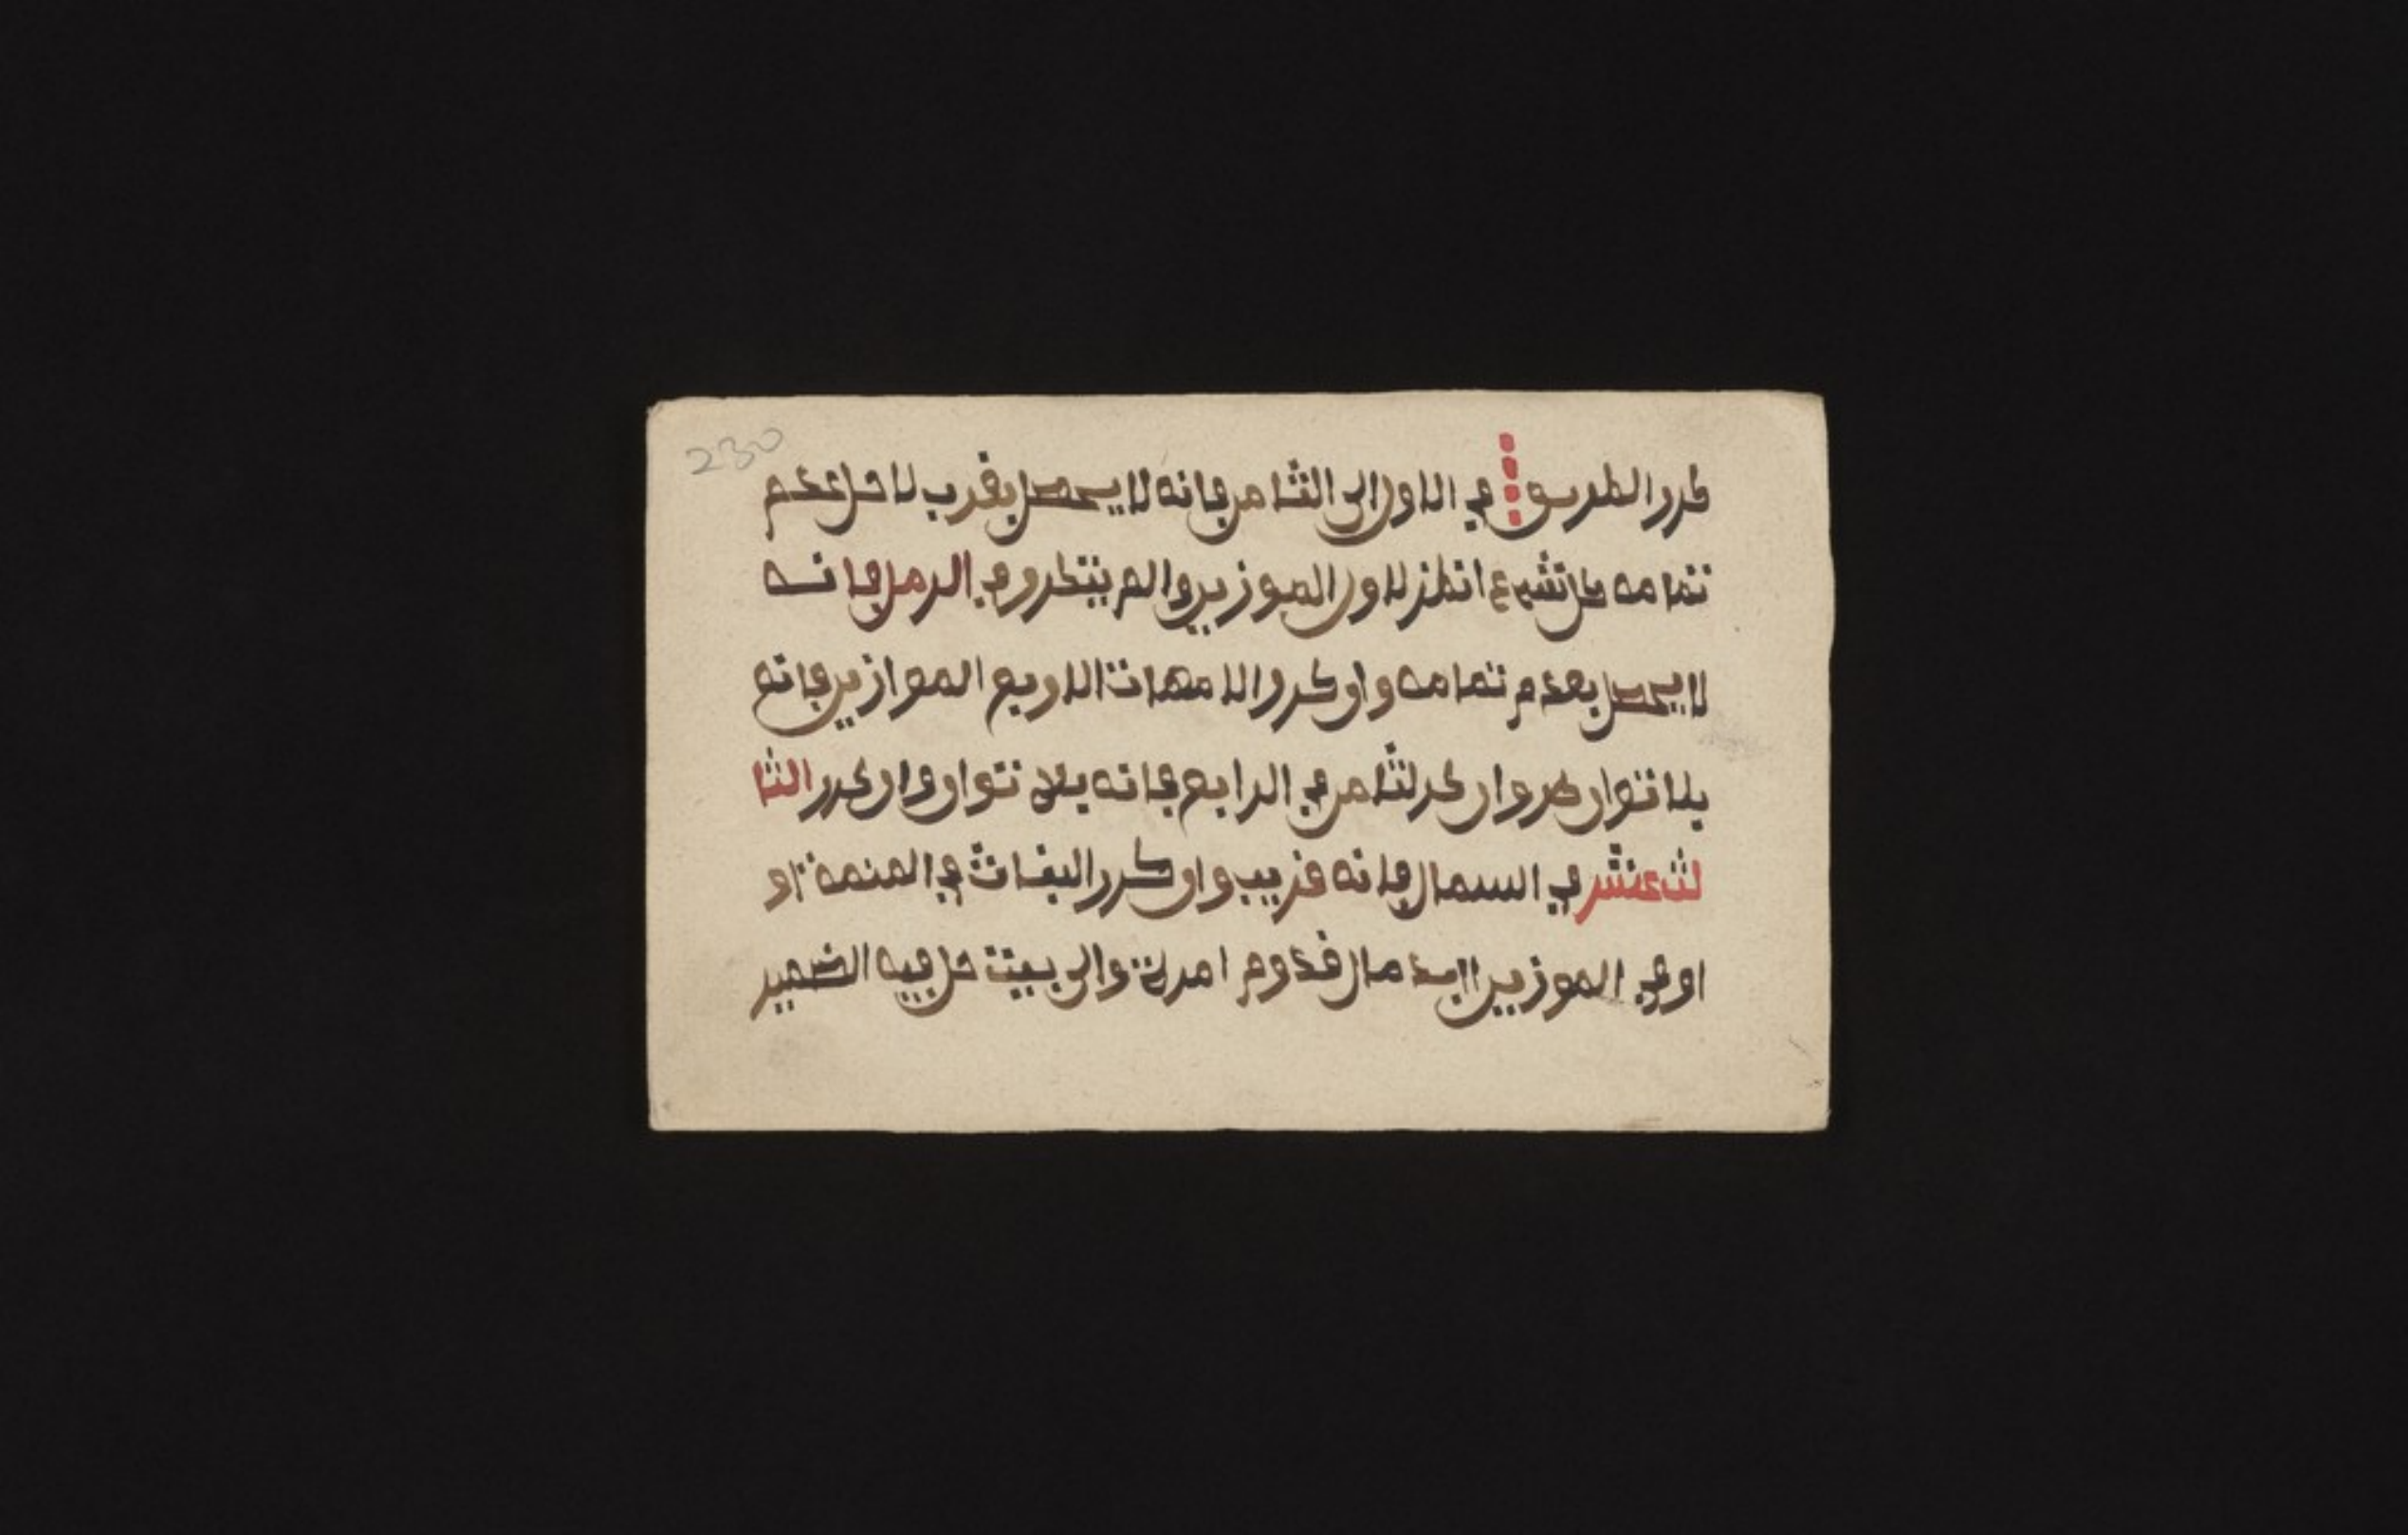 230
كرر الطريق في الاول الى الثامن فانه لا يحصل بقرب لاجل عدم
تمامه كل شيء انظر للاول الموزين والم ينتكرر في الرمل فانه
لا يحصل بعدم تمامه وان كرر الامهات الاربع الموازين فانه
بلا تتوان كرر وان كرر لثامن في الرابع فانه بلا تتوان وان كرر الثا
لث عشر في السمال فانه قريب وان كرر البنات في المنمة او
او في الموزين مال قدوم امرات والى بيت حل فيه الضمير